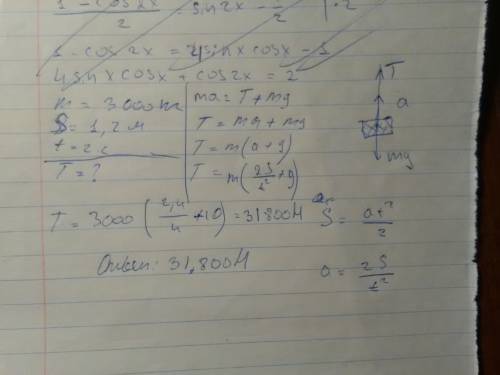 1 - cos2x / 2 = sin2x - 1/2 | · 2
1 - cos2x = 4sinxcosx - 1
4sinxcosx + cos2x = 2
m = 3000кг
S = 1,2 м
t = 2 с
T = ?
ma = T + mg
T = ma + mg
T = m(a+g)
T = m(2S/t² + g)
T
a
mg
T = 3000 (2,4/4 + 10) = 31800Н
S = at²/2
Ответ: 31,800Н
a = 2S/t²